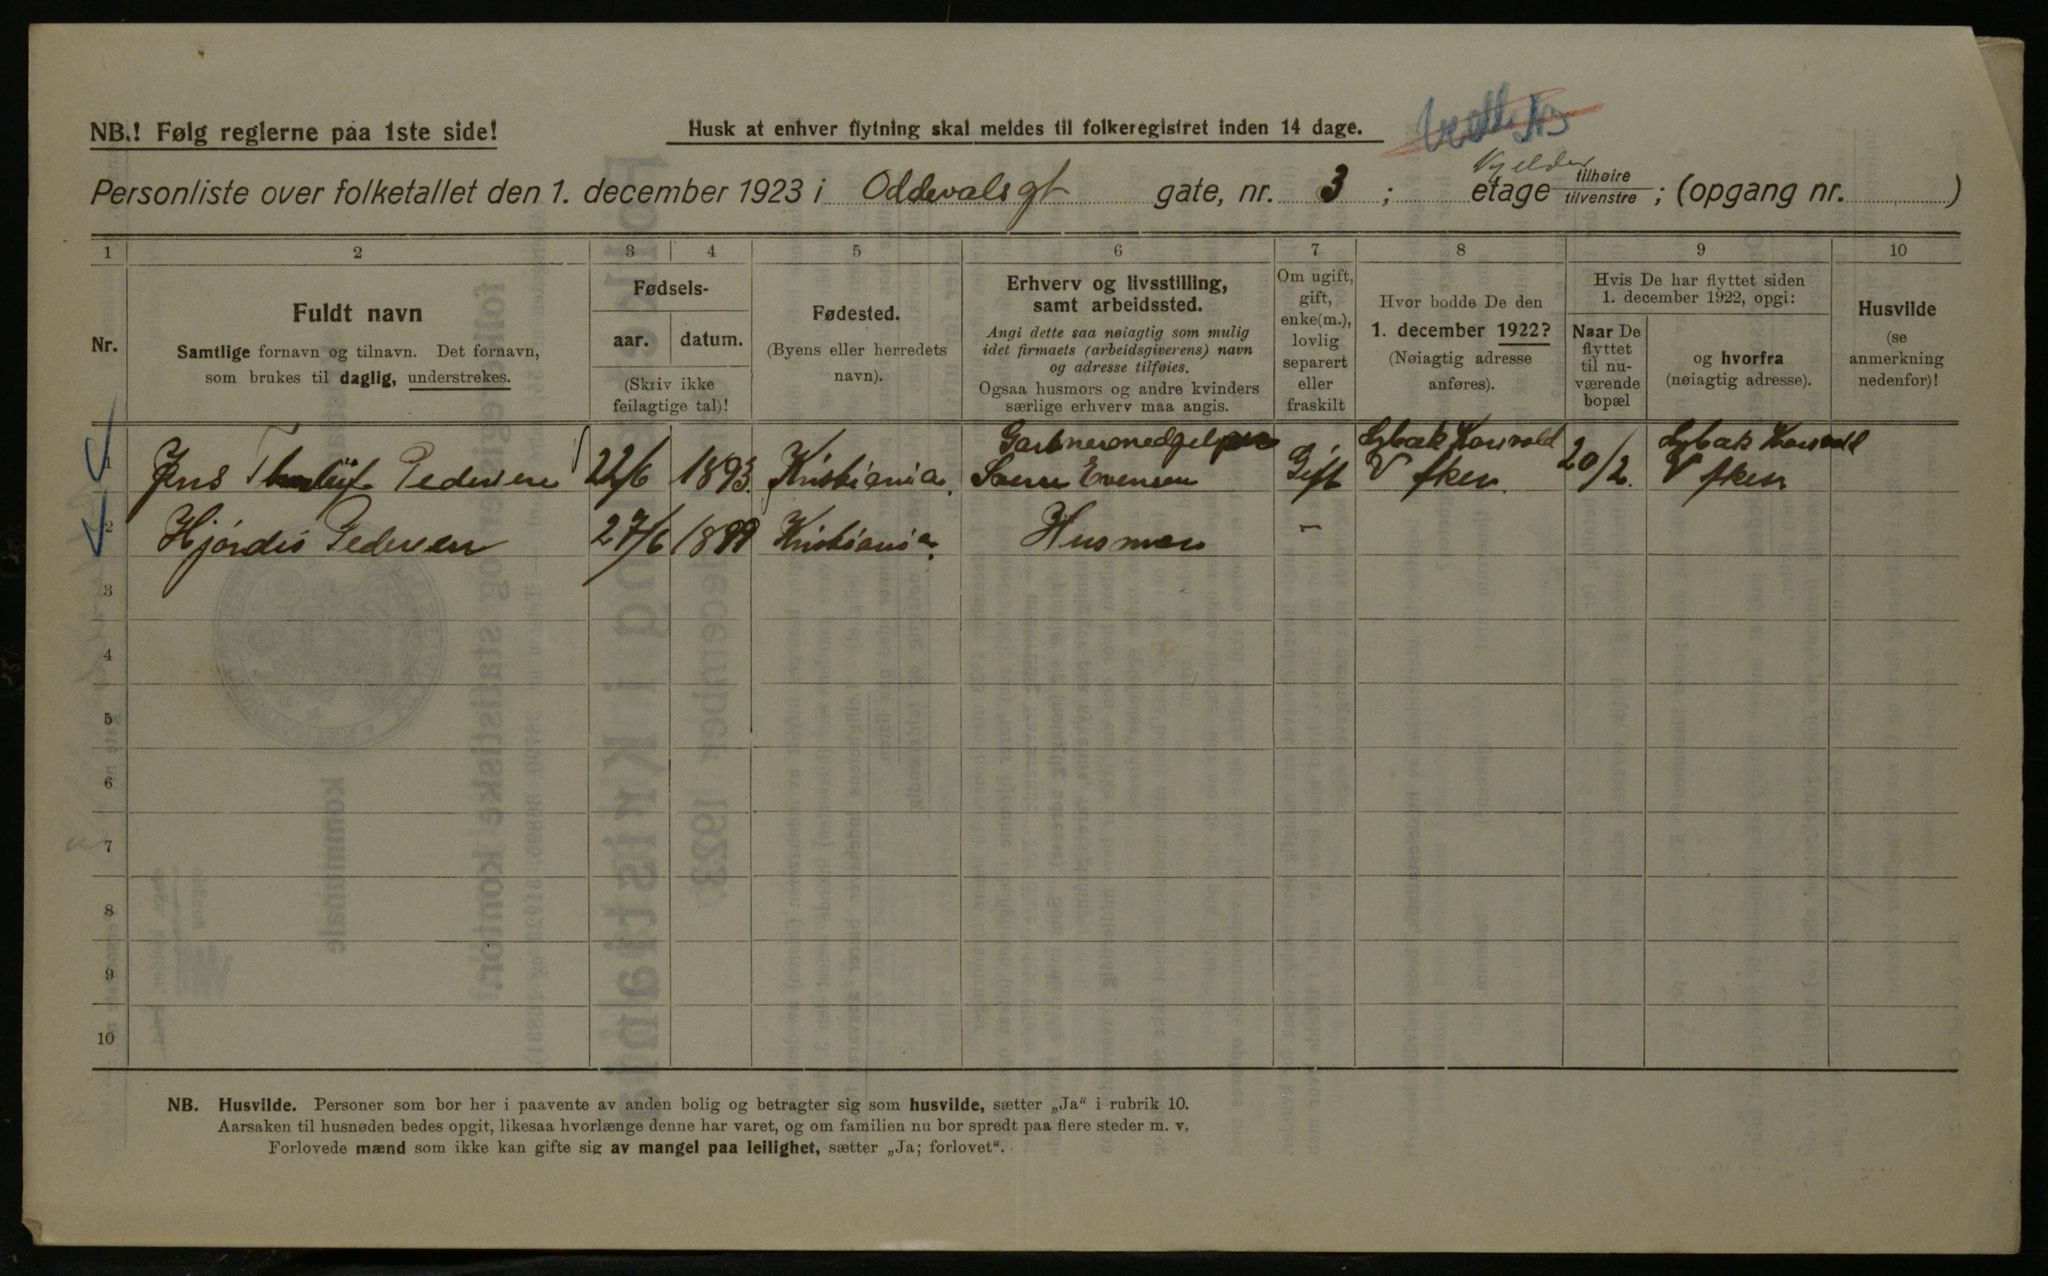 NB.! Følg reglerne paa 1ste side!
Husk at enhver flytning skal meldes til folkeregistret inden 14 dage.
Kjelder
Personliste over folketallet den 1. december 1923 i Oddevalsgt gate, nr. 3 ; etage tilhøire tilvenstre ; (opgang nr. )
1 2 3 4 5 6 7 8 9 10
Nr.
Fuldt navn
Samtlige fornavn og tilnavn. Det fornavn,
som brukes til daglig, understrekes.
Fødsels-
aar. datum.
(Skriv ikke
feilagtige tal)!
Fødested.
(Byens eller herredets
navn).
Erhverv og livsstilling,
samt arbeidssted.
Angi dette saa nøiagtig som mulig
idet firmaets (arbeidsgiverens) navn
og adresse tilføies.
Ogsaa husmors og andre kvinders
særlige erhverv maa angis.
Om ugift,
gift,
enke(m.),
lovlig
separert
eller
fraskilt
Hvor bodde De den
1. december 1922?
(Nøiagtig adresse
anføres).
Hvis De har flyttet siden
1. december 1922, opgi:
Naar De
flyttet
til nu-
værende
bopæl
og hvorfra
(nøiagtig adresse).
Husvilde
(se
anmerkning
nedenfor)!
1 Jens Pedersen 22/6 1893. Kristiania. Evensen Gift V Aker. 20/2. V Aker
2 Hjørdis Pedersen 27/6 1899 Kristiania. Husmor –
3
4
5
6
7
8
9
10
NB. Husvilde. Personer som bor her i paavente av anden bolig og betragter sig som husvilde, sætter „Ja“ i rubrik 10.
Aarsaken til husnøden bedes opgit, likesaa hvorlænge denne har varet, og om familien nu bor spredt paa flere steder m. v.
Forlovede mænd som ikke kan gifte sig av mangel paa leilighet, sætter „Ja; forlovet“.